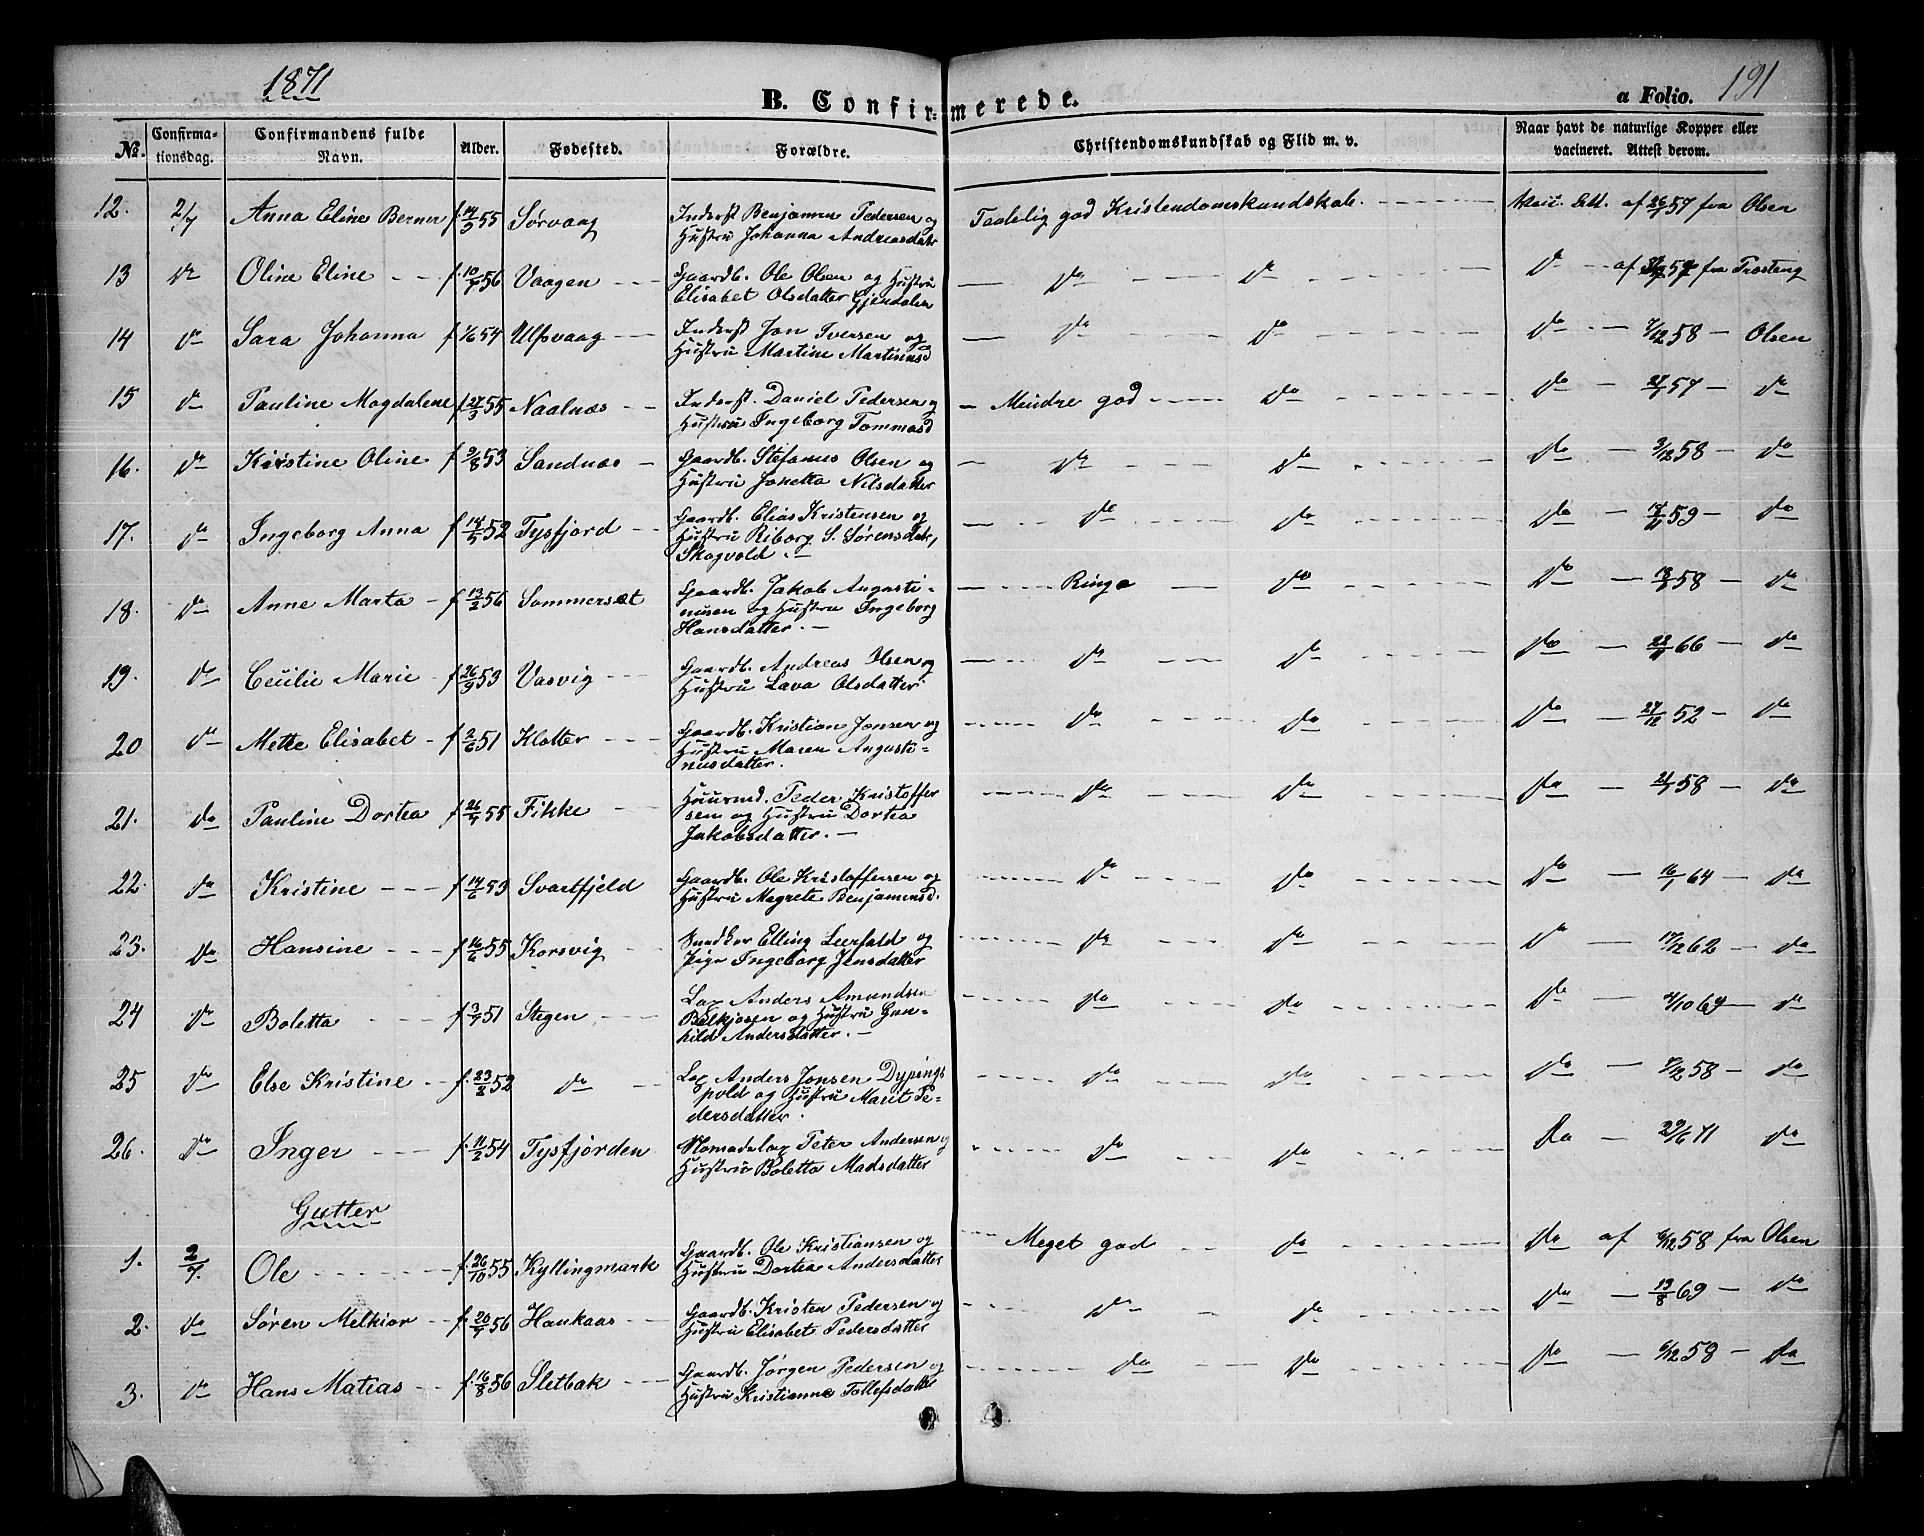 1871
B. Confirmerede.
a Folio. 191
No. Confirmationsdag. Confirmandens fulde Navn. Alder. Fødested. Forældre. Christendomskundskab og Flid m. v. Naar havt de naturlige Kopper eller vacineret. Attest derom.
12. 2/7 Anna Eline Berner f. 14/3 55 Sørvaag Inderst Benjamin Pedersen og Taalelig god Kristendomskundskab. af 26/7 57 fra Olsen
Hustru Johanna Andreasdatr
13 do Oline Eline f. 10/7 56 Vaagen Gaardb. Ole Olsen og Hustru do do do af 57 fra
Elisabet Olsdatter Gjendalen
14 do Sara Johanna f. 1/6 54 Ulfsvaag Inderst Jon Iversen og do do do 7/12 58 Olsen
Hustru Martine Martinusd
15 do Pauline Magdalene f. 27/3 55 Naalnæs Inderst. Daniel Pedersen og Mindre god do do 57 do
Hustru Ingeborg Tommasd
16. do Kirstine Oline f. 9/8 53 Sandnæs Gaardb. Stefanus Olsen og do do do 58 do
Hustru Jonetta Nilsdatter
17. do Ingeborg Anna f. 14/5 52 Tysfjord Gaardb. Elias Kristensen og do do do 59 do
Hustru Riborg S. Sørensdatr,
Skogvold.
18. do Anne Marta f. 13/2 56 Sommersæt Gaardb. Jakob Augusti- Ringe do do 58 do
nusen og Hustru Ingeborg
Hansdatter.
19. do Cecilie Marie f. 26/9 53 Vasvig Gaardb. Andreas Olsen og do do do 66 do
Hustru Lava Olsdatter
20 do Mette Elisabet f. 2/6 51 Klotter Gaardb. Kristian Jonsen og do do do 27/12 52 do
Hustru Maren Augusti-
nusdatter.
21. do Pauline Dortea f. 26/7 55 Fikke Huusmd. Peder Kristoffer do do do 58 do
sen og Hustru Dortea
Jakobsdatter.
22. do Kristine f. 14/6 53 Svartfjeld Gaardb. Ole Kristoffersen og do do do 16/1 64 do
Hustru Magrete Benjaminsd.
23. do Hansine f. 16/6 55 Korsvig Elling Leerfald og do do do 17/12 62 do
Pige Ingeborg Jensdatter
24 do Boletta f. 3/7 51 Stegen Lap Anders Amundsen do do do /10 69 do
Belkjosen og Hustru Gun-
hild Andersdatter.
25 do Else Kristine f. 23/2 52 do Lap Anders Jonsen Dypings do do do /12 58 do
pold og Hustru Marit Pe-
dersdatter.
26. do Inger f. 11/2 54 Tysfjorden Nomadelap Peter Andersen og do do do 29/6 71 do
Hustru Boletta Madsdatter
Gutter
1. 2/7. Ole f. 26/10 55 Kyllingmark Gaardb. Ole Kristiansen og Meget god do do af 6/12 58 fra Olsen
Hustru Dortea Andersdatter
2. do Søren Melkior f. 20/7 56 Haukaas Gaardb. Kristen Pedersen og do do do 13/8 69 do
Hustru Elisabet Pedersdatter
3. do Hans Matias f. 16/8 56 Sletbak Gaardb. Jørgen Pedersen og do do do 6/12 58 do
Hustru Kristianne Tollefsdatte